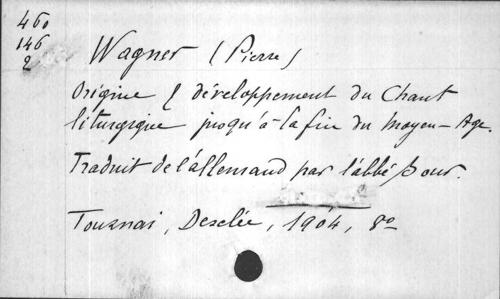 460
146
2
Wagner (Pierre)
Origine & développement du Chant
liturgique jusqu'à la fin du Moyen-Age.
Traduit de l'allemand par l'abbé Bour.
Tournai, Desclée, 1904, 8o